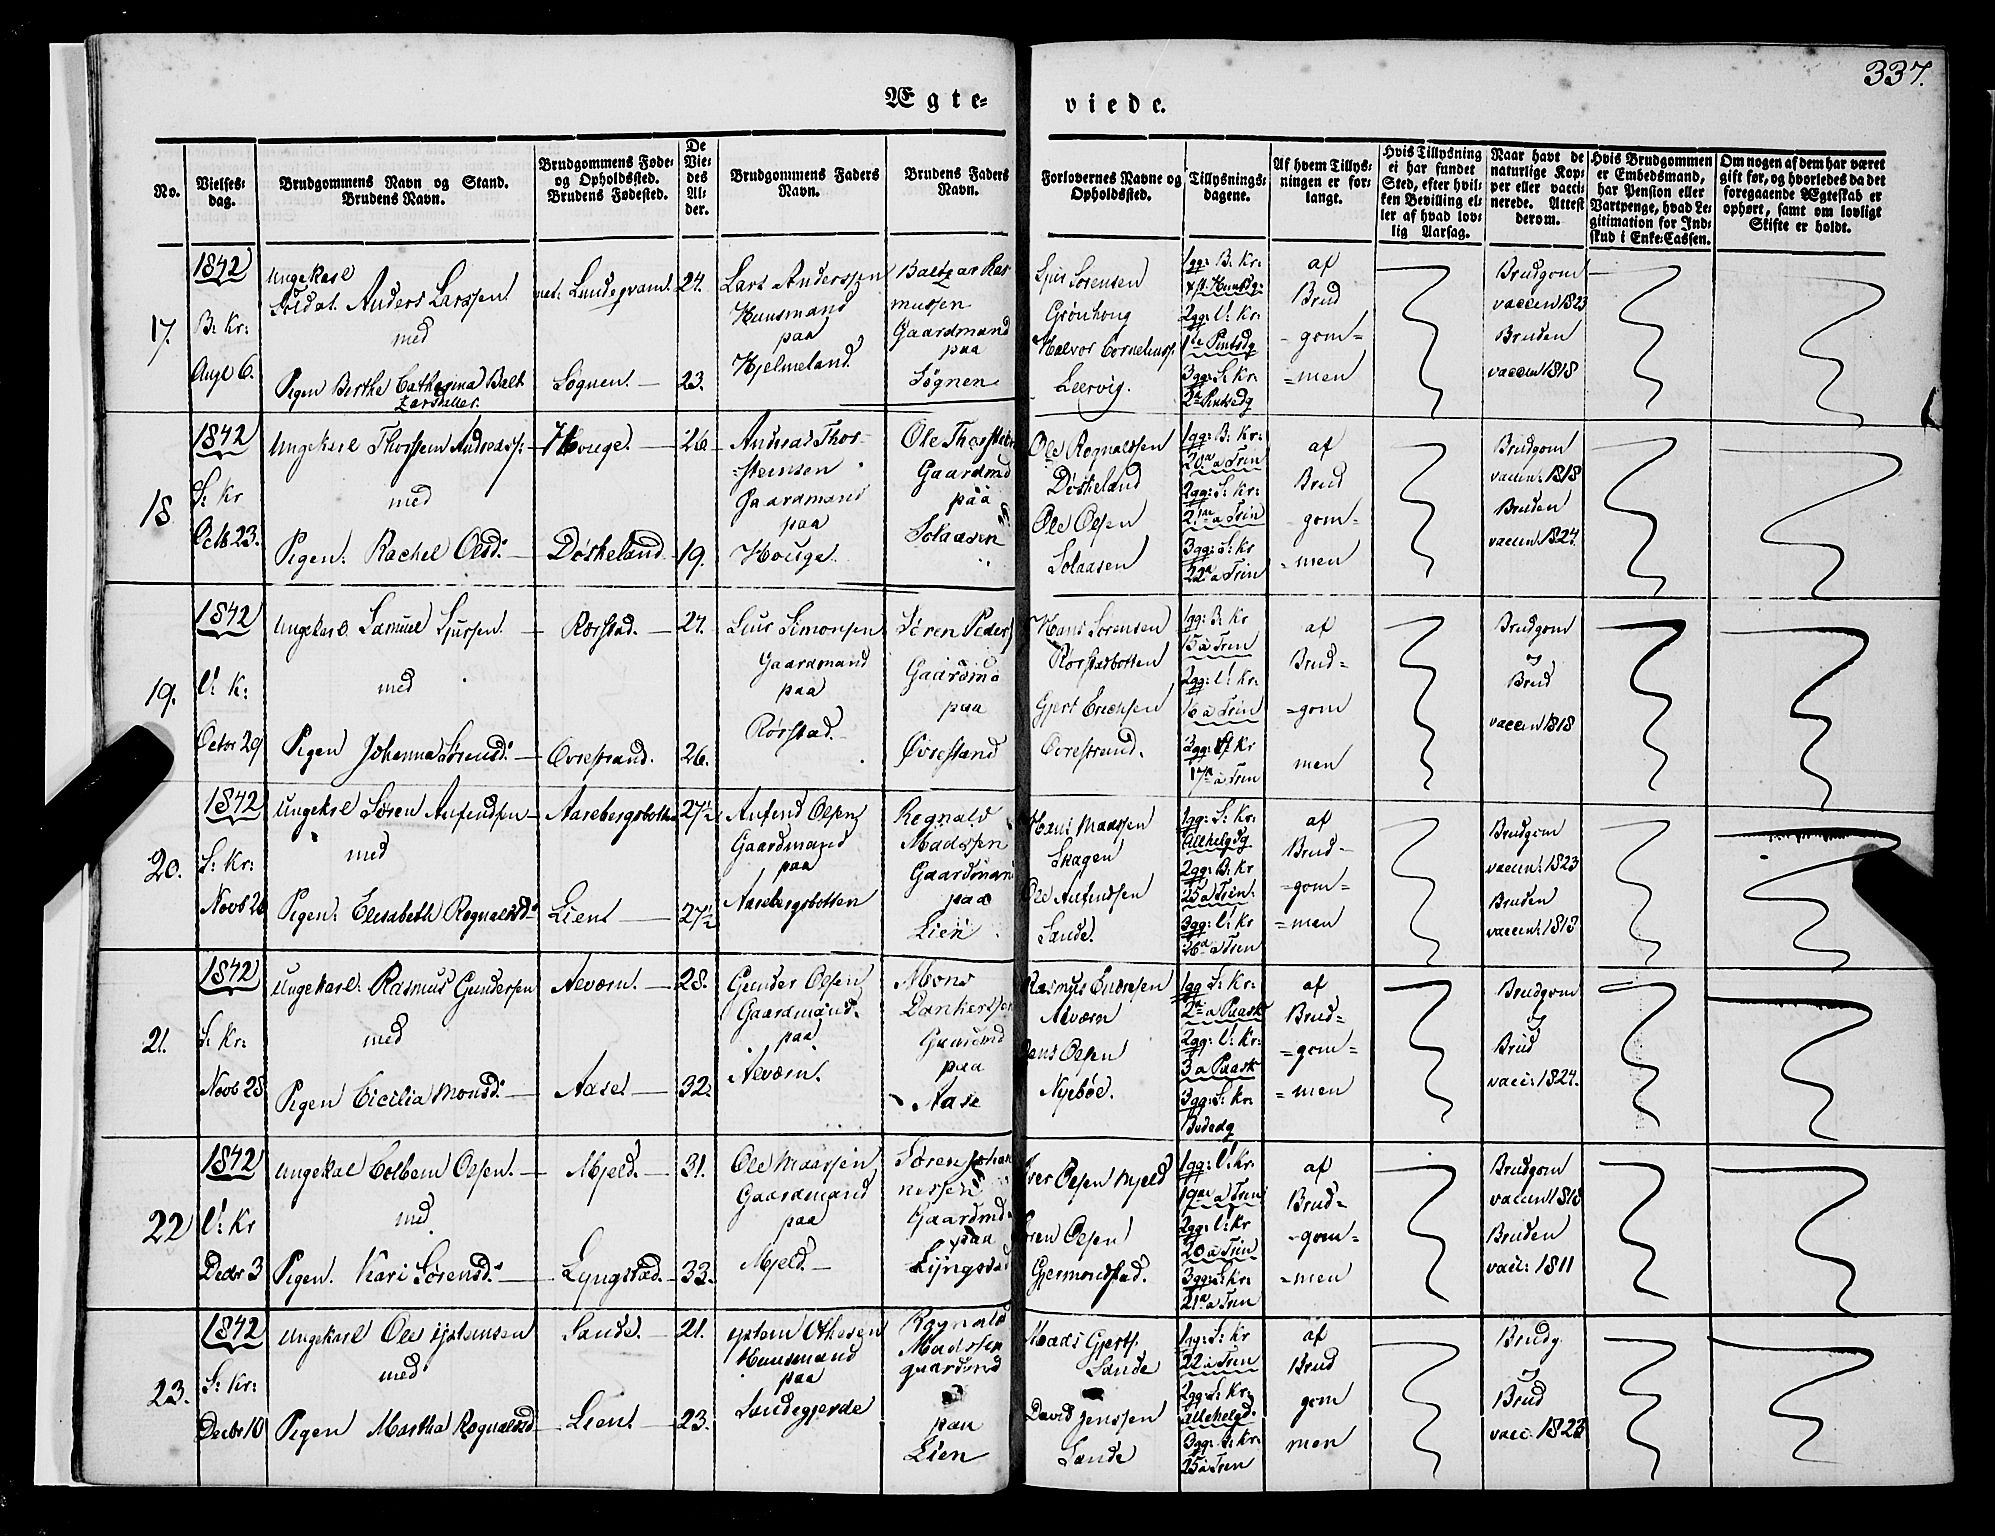 337.
Ægte-
viede.
No.
Vielses-
dag.
Brudgommens Navn og Stand.
Brudens Navn.
Brudgommens Føde-
og Opholdssted.
Brudens Fødested.
De
Vie-
des
Al-
der.
Brudgommens Faders
Navn.
Brudens Faders
Navn.
Forlovernes Navne og
Opholdssted.
Tillysnings-
dagene.
Af hvem Tillys-
ningen er for-
langt.
Hvis Tillysning
ei har fundet
Sted, efter hvil-
ken Bevilling el-
ler af hvad lov-
lig Aarsag.
Naar havt de
naturlige Kop-
per eller vacci-
nerede. Attest
derom.
Hvis Brudgommen
er Embedsmand,
har Pension eller
Vartpenge, hvad Le-
gitimation for Ind-
skud i Enke-Cassen.
Om nogen af dem har været
gift før, og hvorledes da det
foregaaende Ægteskab er
ophørt, samt om lovligt
Skifte er holdt.
17.
1842
B: Kr:
Augt 6.
Ungekarl
Soldat. Anders Larssen
med
Pigen Berthe Cathrina Balt
zarsdatter.
Sognen.
24.
23.
Lars Anderssen
Huusmand
paa
Hjelmeland.
Baltzar Ras
mussen
Gaardmand
paa
Sognen
Sørensen
Grönhoug
Halvor Corneliuss:
Leervig.
1gg: B: Kr:
2gg: V: Kr:
1te Pintsdg
3gg: S: Kr:
2n Pintsedg
af
Brud
-gom=
=men
Brudgom
vaccin 1823
Bruden
vaccin 1818
18
1842
S: Kr
Octb 23.
Ungekarl Thorsteen Andreass:
med
Pigen. Rachel Olsd:
Houge.
Døskeland
26
19.
Andreas Thor-
steinsen
Gaardmand
paa
Houge.
Ole Thorstein
Gaardmd
paa
Solaasen
Ole Rognaldsen
Døskeland
Ole Olsen
Solaasen
1gg: B: Kr:
20n a Trin
2gg: S: Kr:
21n a Trin
3gg: S: Kr
22n a Trin
af
Brud
-gom=
=men
Brudgom
vaccin: 1818
Bruden
vaccin: 1824.
19.
1842
V: K:
Octbr 29
Ungekarl Samuel Sjursen.
med
Pigen Johanna Sörensd:
Rørstad.
Øvrestrand.
24.
26.
Siur Simonsen
Gaardmand
paa
Rørstad.
Søren Peders
Gaardmd
paa
Hans Sørensen
Rørstadbotten
Gjert Erichsen
Øvrestrand.
1gg: B: Kr
15 a Trin
2gg: V: Kr:
16 a Trin
3gg: Kr
17n a Trin
af
Brud=
=gom
men
Brudgom
og
Brud
vaccin 1818
20.
1842
S: Kr:
Novb 26
Ungekarl Søren Anfindsen
med
Pigen: Elisabeth Rognaldsd:
Aasebergsbotten
Lien.
27½
27½
Anfind Olsen
Gaardmand
paa
Aasebergsbotten
Regnald
Madssen
Gaardmand
paa
Lien
Hans Maassen
Skagen
Ole Anfindsen
Sande.
1gg: S: Kr:
Alhelgdg
2gg: B: Kr
25 a Trin:
3gg: V: Kr
26n a Trin
af
Brud-
=gom=
=men
Brudgom
vaccin: 1823
Bruden
vaccin: 1818
21.
1842
S: Kr:
Novb 28
Ungekarl: Rasmus Gundersen
med
Pigen Cicilia Monsd:
Alværn.
Aase.
28.
32.
Gunder Olsen
Gaardmand.
paa
Alværn.
Mons
Dankertsen
Gaardmd
paa
Aase
Rasmus Endresen
Alværn
Hans Olsen
Nybøe.
1gg S: Kr:
2n a Paask
2gg: V: Kr:
3 a Paask
3gg: S: Kr:
Bededg
af
Brud=
=gom=
=men
Brudgom
og
Brud
vacc: 1824.
22
1842
V: Kr
Decbr 3
Ungekal Colbein Olsen.
med
Pigen. Kari Sörensd:
Mjeld.
Lyngstad
31.
33.
Ole Maassen
Gaardmand
paa
Mjeld.
Søren Johan
nessen
Gaardmd
paa
Lyngstad
Iver Olsen Mjeld
Søren Olsen
Gjermonstad.
1gg: V: Kr:
19n a Trin
2gg: V: Kr
20 a Trin
3gg: S: Kr:
21n a Trin
af
Brud=
-gom=
=men
Brudgom
vaccin 1818
Bruden
vacc: 1811
23.
1842
S: Kr:
Decbr 10
Ungekarl Ole Ijstensen
med
Pigen Martha Rognaldsd
Sande.
Lien.
21.
23.
Huusmand
paa
Sandegjerde
Rognald
Madssen
gaardmd
paa
Lien
Maads Gjerts:
Sande
David Jenssen
Sande
1gg: S: Kr
22 a Trin
2gg: S: Kr:
Allehelgd.
3gg: B: Kr:
25 a Tren
af
Brud
gom
men
Brudg
og
Brud
vacc: 1823